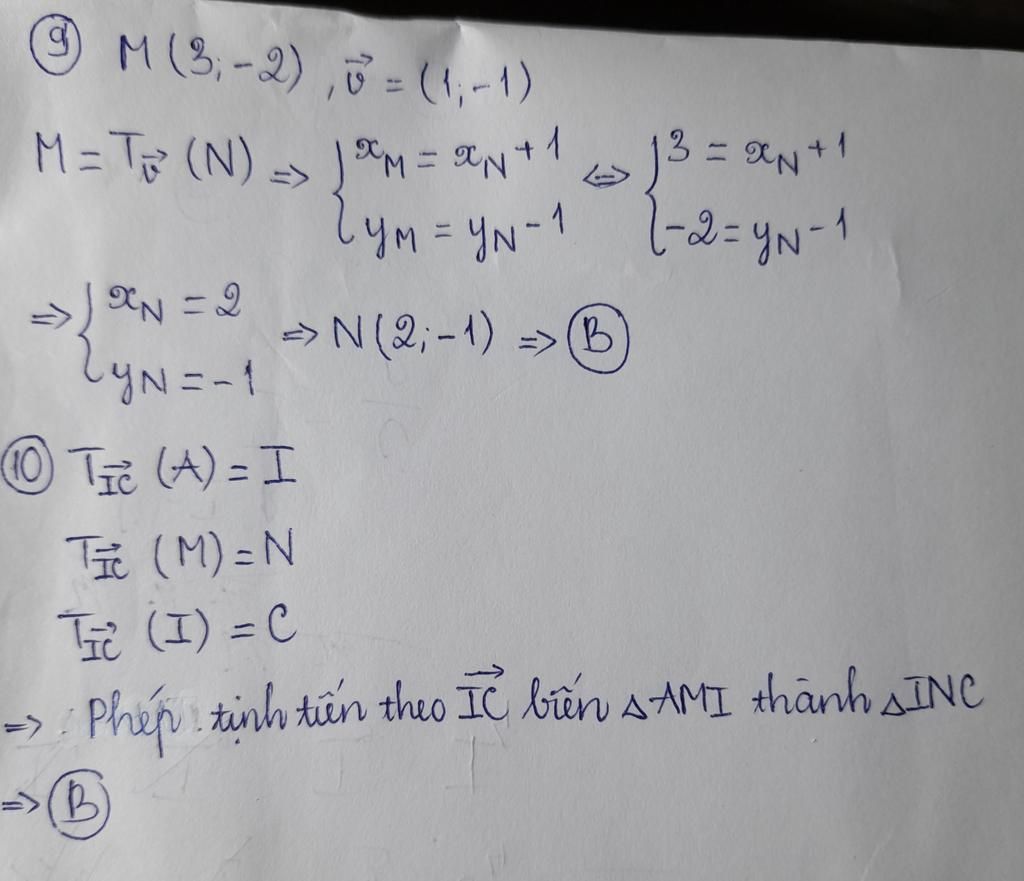 9 M(3;-2), v⃗ = (1;-1)
M = Tv⃗ (N) => { xM = xN + 1 <=> { 3 = xN + 1
yM = yN - 1 -2 = yN - 1
=> { xN = 2 => N(2;-1) => B
yN = -1
10 TIC⃗ (A) = I
TIC⃗ (M) = N
TIC⃗ (I) = C
=> Phép tịnh tiến theo IC⃗ biến △AMI thành △INC
=> B